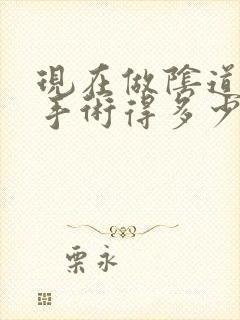 現在做陰道
手術得多少
栗永